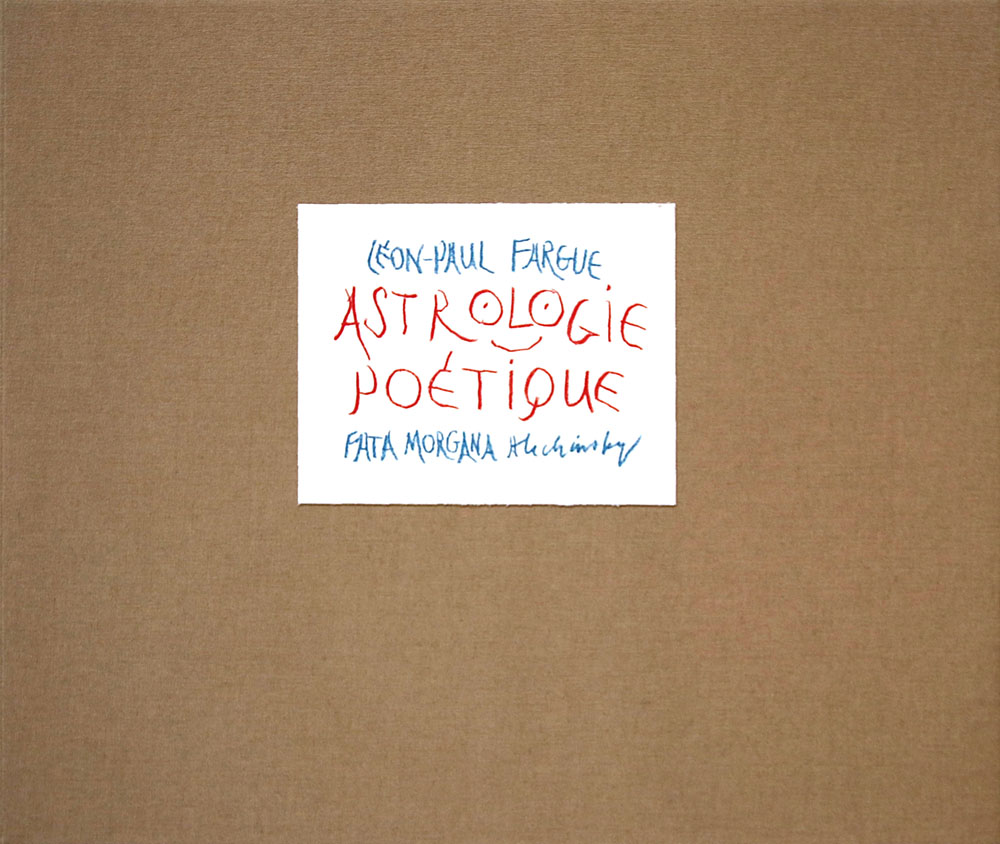 LÉON-PAUL FARGUE
ASTROLOGIE
POÉTIQUE
FATA MORGANA Alechinsky